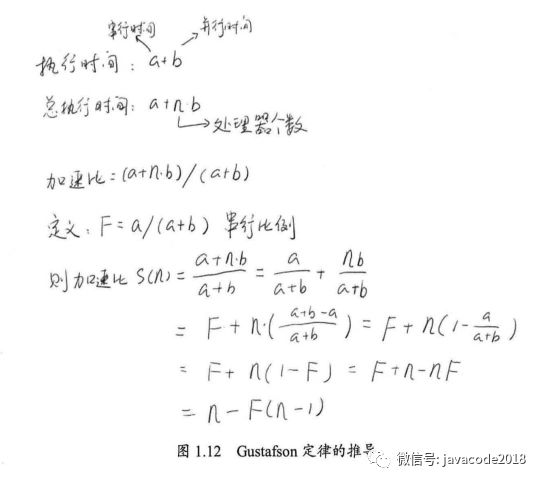 串行时间 并行时间
执行时间: a+b
总执行时间: a+n·b
处理器个数
加速比=(a+n·b)/(a+b)
定义: F=a/(a+b) 串行比例
则加速比 S(n)=\frac{a+n·b}{a+b} = \frac{a}{a+b} + \frac{nb}{a+b}
= F+n·(\frac{a+b-a}{a+b}) = F+n(1-\frac{a}{a+b})
= F+n(1-F) = F+n-nF
= n-F(n-1)
图 1.12 Gustafson 定律的推导
微信号: javacode2018